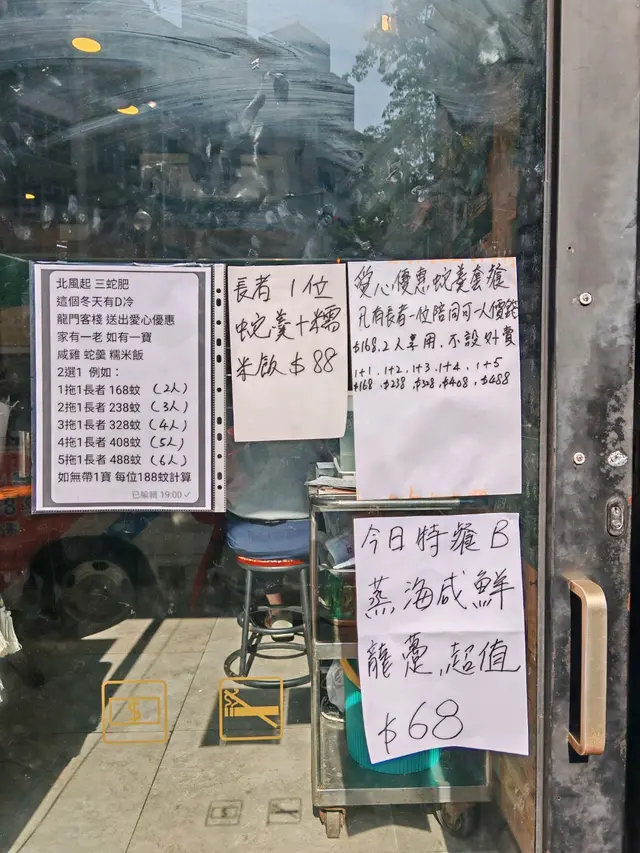 北風起 三蛇肥
這個冬天有D冷
龍門客棧 送出愛心優惠
家有一老 如有一寶
咸雞 蛇羹 糯米飯
2選1 例如：
1拖1長者 168蚊 (2人)
2拖1長者 238蚊 (3人)
3拖1長者 328蚊 (4人)
4拖1長者 408蚊 (5人)
5拖1長者 488蚊 (6人)
如無帶1寶 每位188蚊計算
已編輯 19:00
長者 1位
蛇羹+糯
米飯$88
愛心優惠蛇羹套餐
凡有長者一位陪同可一人價錢
$168.2人享用.不設外賣
1+1.1+2.1+3.1+4.1+5
$168.$238.$328.$408.$488
今日特餐B
蒸海咸鮮
龍躉.超值
$68